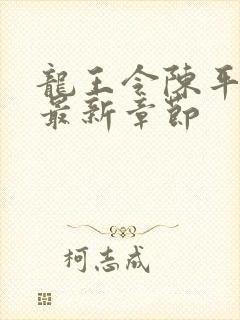 龍王令陳平
最新章節
柯志成